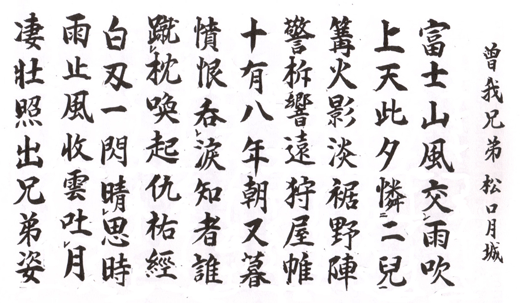 曽我兄弟 松口月城
富士山風交レ雨吹
上天此夕憐二二兒一
篝火影淡裾野陣
警柝響遠狩屋帷
十有八年朝又暮
憤恨呑レ淚知者誰
蹴レ枕喚起仇祐經
白刃一閃晴レ思時
雨止風收雲吐レ月
凄壮照出兄弟姿